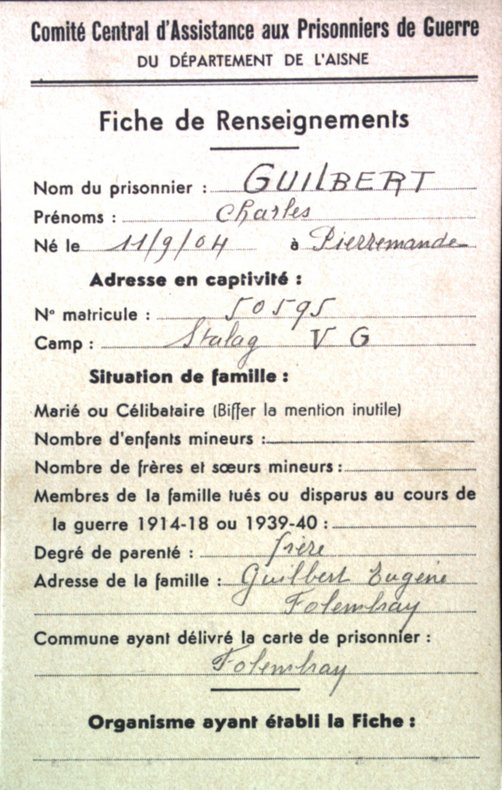 Comité Central d'Assistance aux Prisonniers de Guerre
DU DÉPARTEMENT DE L'AISNE
Fiche de Renseignements
Nom du prisonnier : GUILBERT
Prénoms : Charles
Né le 11/9/04 à Pierremande
Adresse en captivité :
No matricule : 50595
Camp : Stalag V G
Situation de famille :
Marié ou Célibataire (Biffer la mention inutile)
Nombre d'enfants mineurs :
Nombre de frères et sœurs mineurs :
Membres de la famille tués ou disparus au cours de
la guerre 1914-18 ou 1939-40 :
Degré de parenté : frère
Adresse de la famille : Guilbert Eugène
Folembray
Commune ayant délivré la carte de prisonnier :
Folembray
Organisme ayant établi la Fiche :